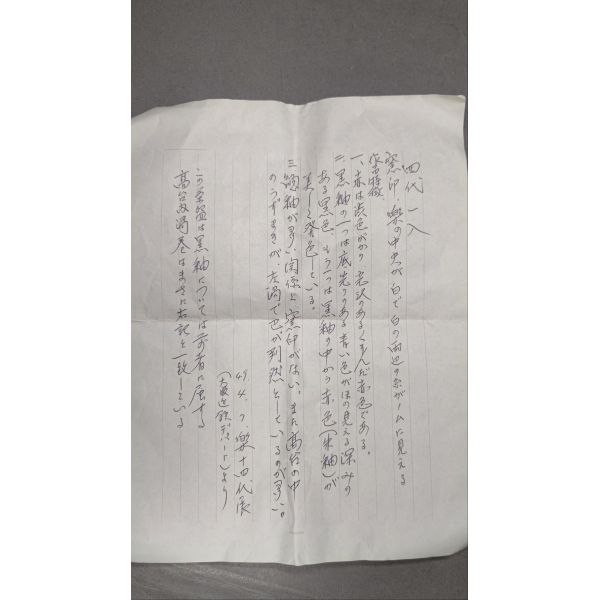 四代 一入
窯印、楽の中央が白で白の両辺の糸がムに見える
作品特徴
一、赤は渋色がかり、光沢のあるくすんだ赤色である。
二、黒釉の一つは底光りのある青い色がほの見える深みの
ある黒色、もう一つは黒釉の中から赤色(朱釉)が
美しく発色している。
三 総釉が多い関係上窯印がない。また高台の中
のうずまきが、左渦で巴が判然としているのが多い。
49.4.7. 楽十四代展
(大阪近鉄デパート)より
この茶盌は黒釉については前者に属する
高台内渦巻はまさに右記と一致している